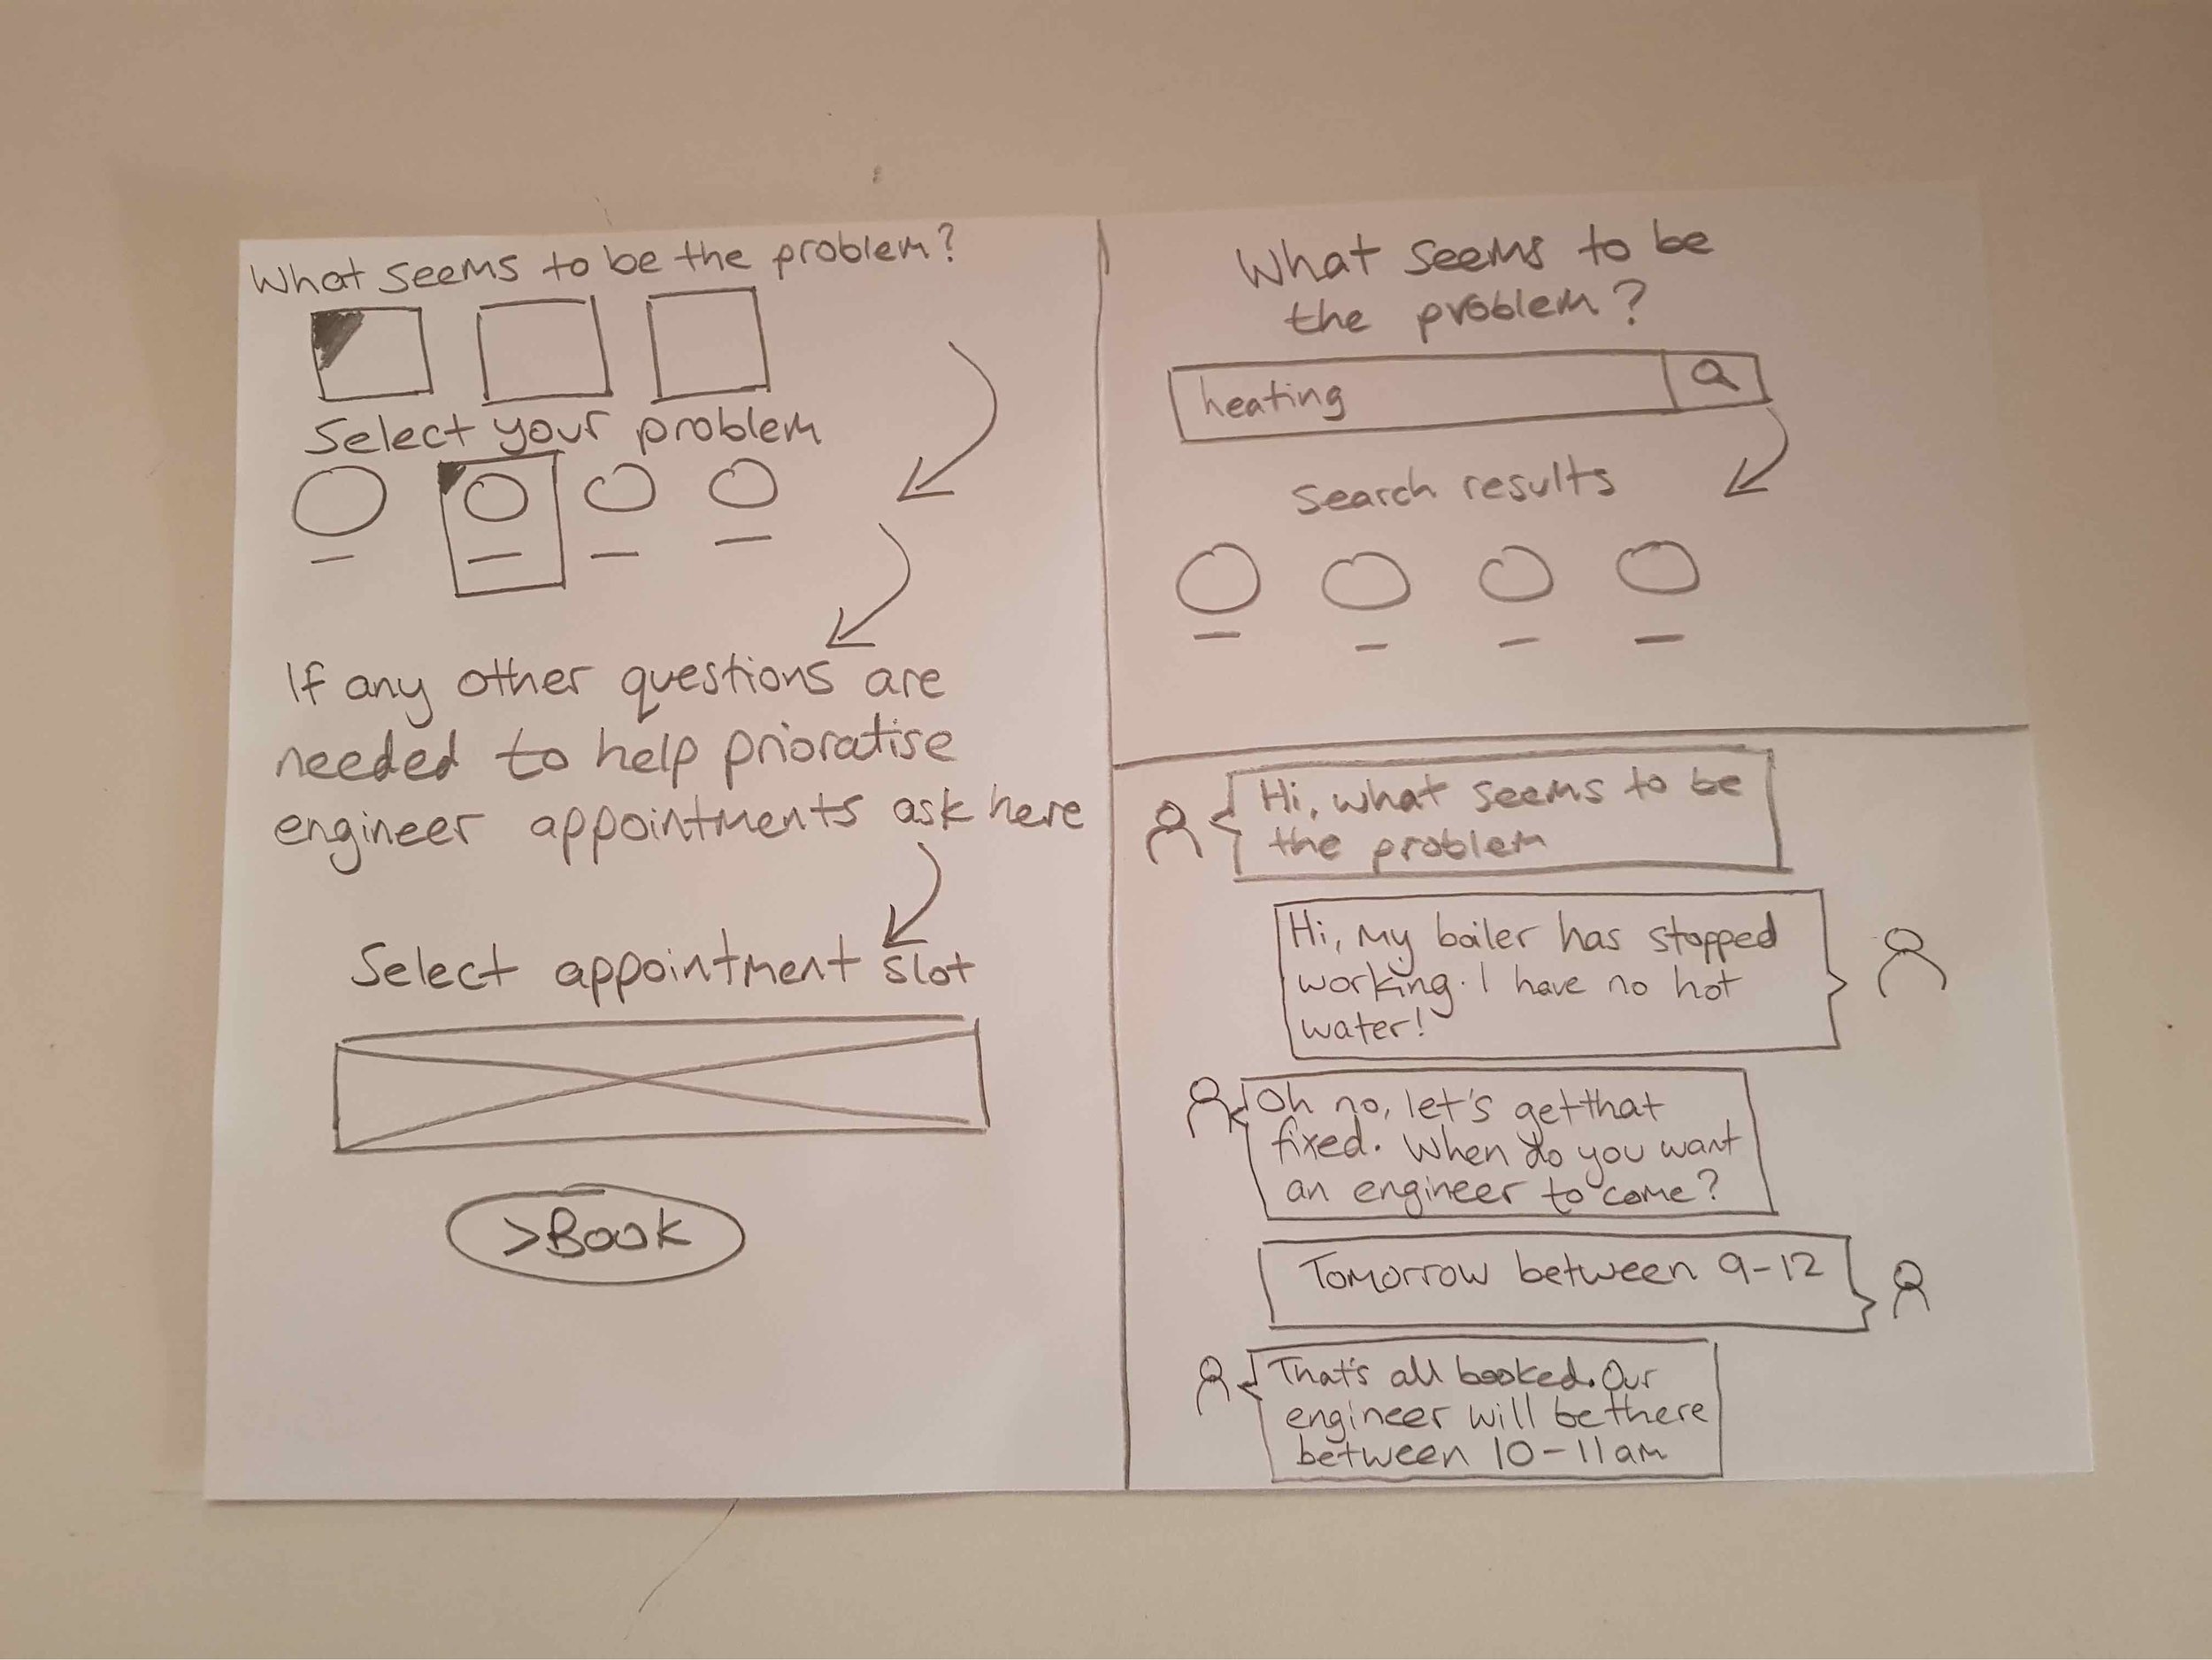 What seems to be the problem?
Select your problem
If any other questions are
needed to help prioratise
engineer appointments ask here
Select appointment slot
>Book
What seems to be
the problem?
heating
Search results
Hi, what seems to be
the problem
Hi, my boiler has stopped
working. I have no hot
water!
Oh no, let's get that
fixed. When do you want
an engineer to come?
Tomorrow between 9-12
That's all booked. Our
engineer will be there
between 10-11am